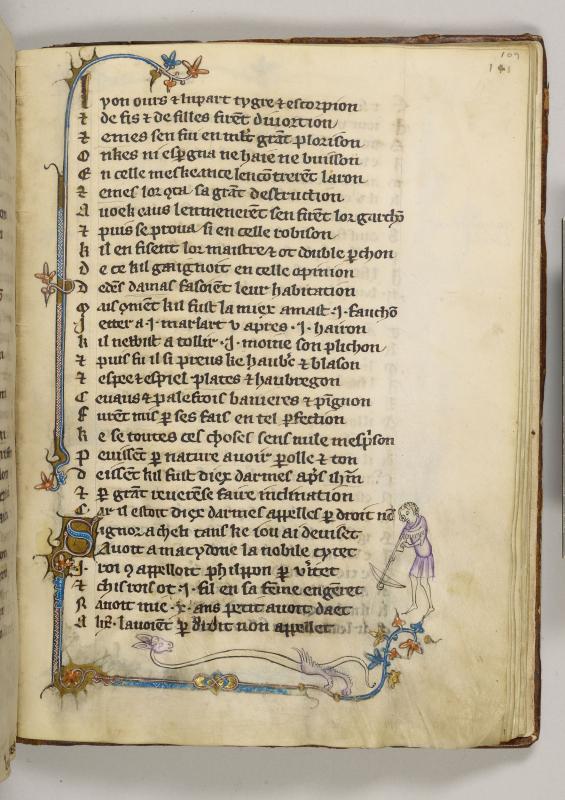 109
141
Lyon ours ⁊ lupart tygre ⁊ escorpion
⁊ de fis ⁊ de filles firẽt diuortion
⁊ emes sen fui en mlt̃ grãt plorison
ne haie ne buisson
E n celle mescheance lencõtrerẽt laron
⁊ emes lor qta sa grãt destruction
A uoek eaus lenmenerẽt sen firẽt lor garchõ
⁊ puis se proua si en celle robison
k il en fisent lor maistre ⁊ ot double pchon
d e ce kil gaaignoit en celle opinion
d edẽs fasoiẽt leur habitation
M ais 9mẽt kil fust la miex amast .j. fauchõ
J etter a .j. mallart v apres .j. hairon
k il a tollir .j. moine son plichon
⁊ puis fu il si preus ke haub̃c ⁊ blason
⁊ espee ⁊ espiel plates ⁊ haubregon
C euaus ⁊ palefrois banieres ⁊ pignon
F urẽt mis p ses fais en tel pfection
k e se toutes ces choses sens nule mesp̃son
P euissẽt p nature auoir polle ⁊ ton
d eissẽt kil fust diex darmes ap̃s
⁊ p grãt reuerẽse faire inclination
C ar il estoit diex darmes appelles p droit nõ
S ignor a cheli tans ke iou ai deuiset
A uoit a macydone la nobile cytet
.j. roi 9 appelloit phelippon p v̾itet
⁊ chis rois ot .j. fil en sa feme engẽret
N auoit mie .x. ans petit auoit daet
A lix̃. lauoiẽt p droit non appellet